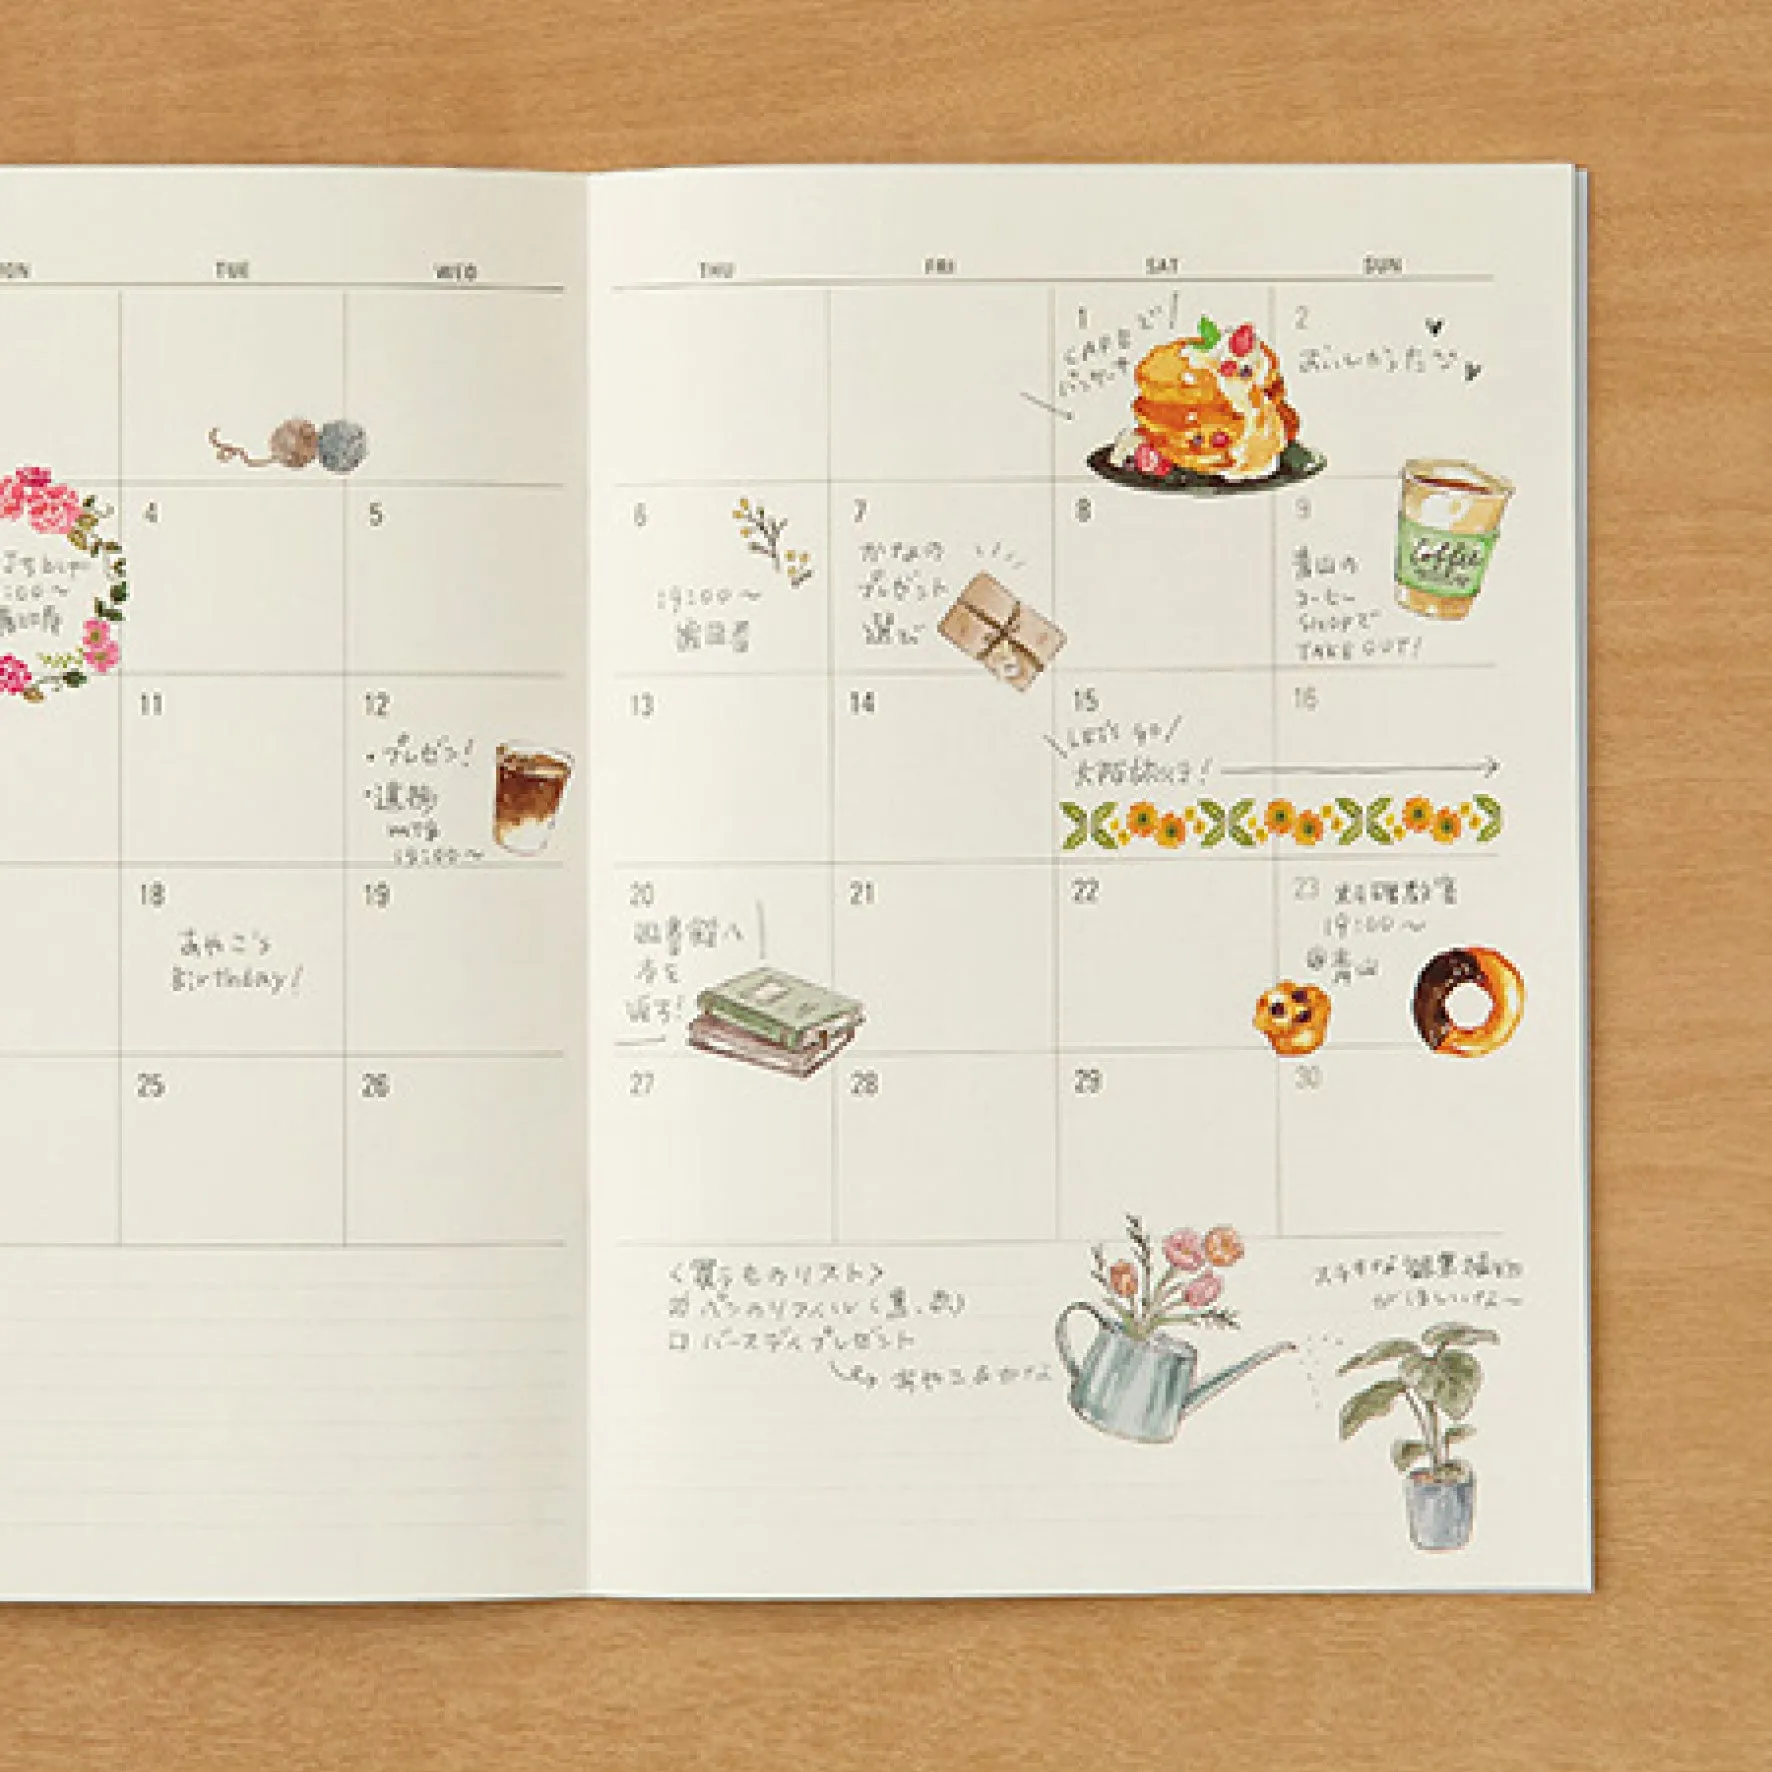 TUE WED THU FRI SAT SUN
1
CAFEで
パンケーキ
2
おいしかった
4
5
6
19:00〜
歯医者
7
かなの
プレゼント
選び
8
9
青山の
コーヒー
SHOPで
TAKE OUT!
Coffee
:00〜
11
12
・プレゼン!
mtg
19:00〜
13
14
15
LET'S go!
大阪旅行!
16
18
あやこ's
Birthday!
19
20
図書館へ
本を
返す!
21
22
23 料理教室
19:00〜
@青山
25
26
27
28
29
30
<買うものリスト>
☑ ペンのリフィル(黒、赤)
□ バースデイプレゼント
あやこ&かな
ステキな観葉植物
がほしいな〜